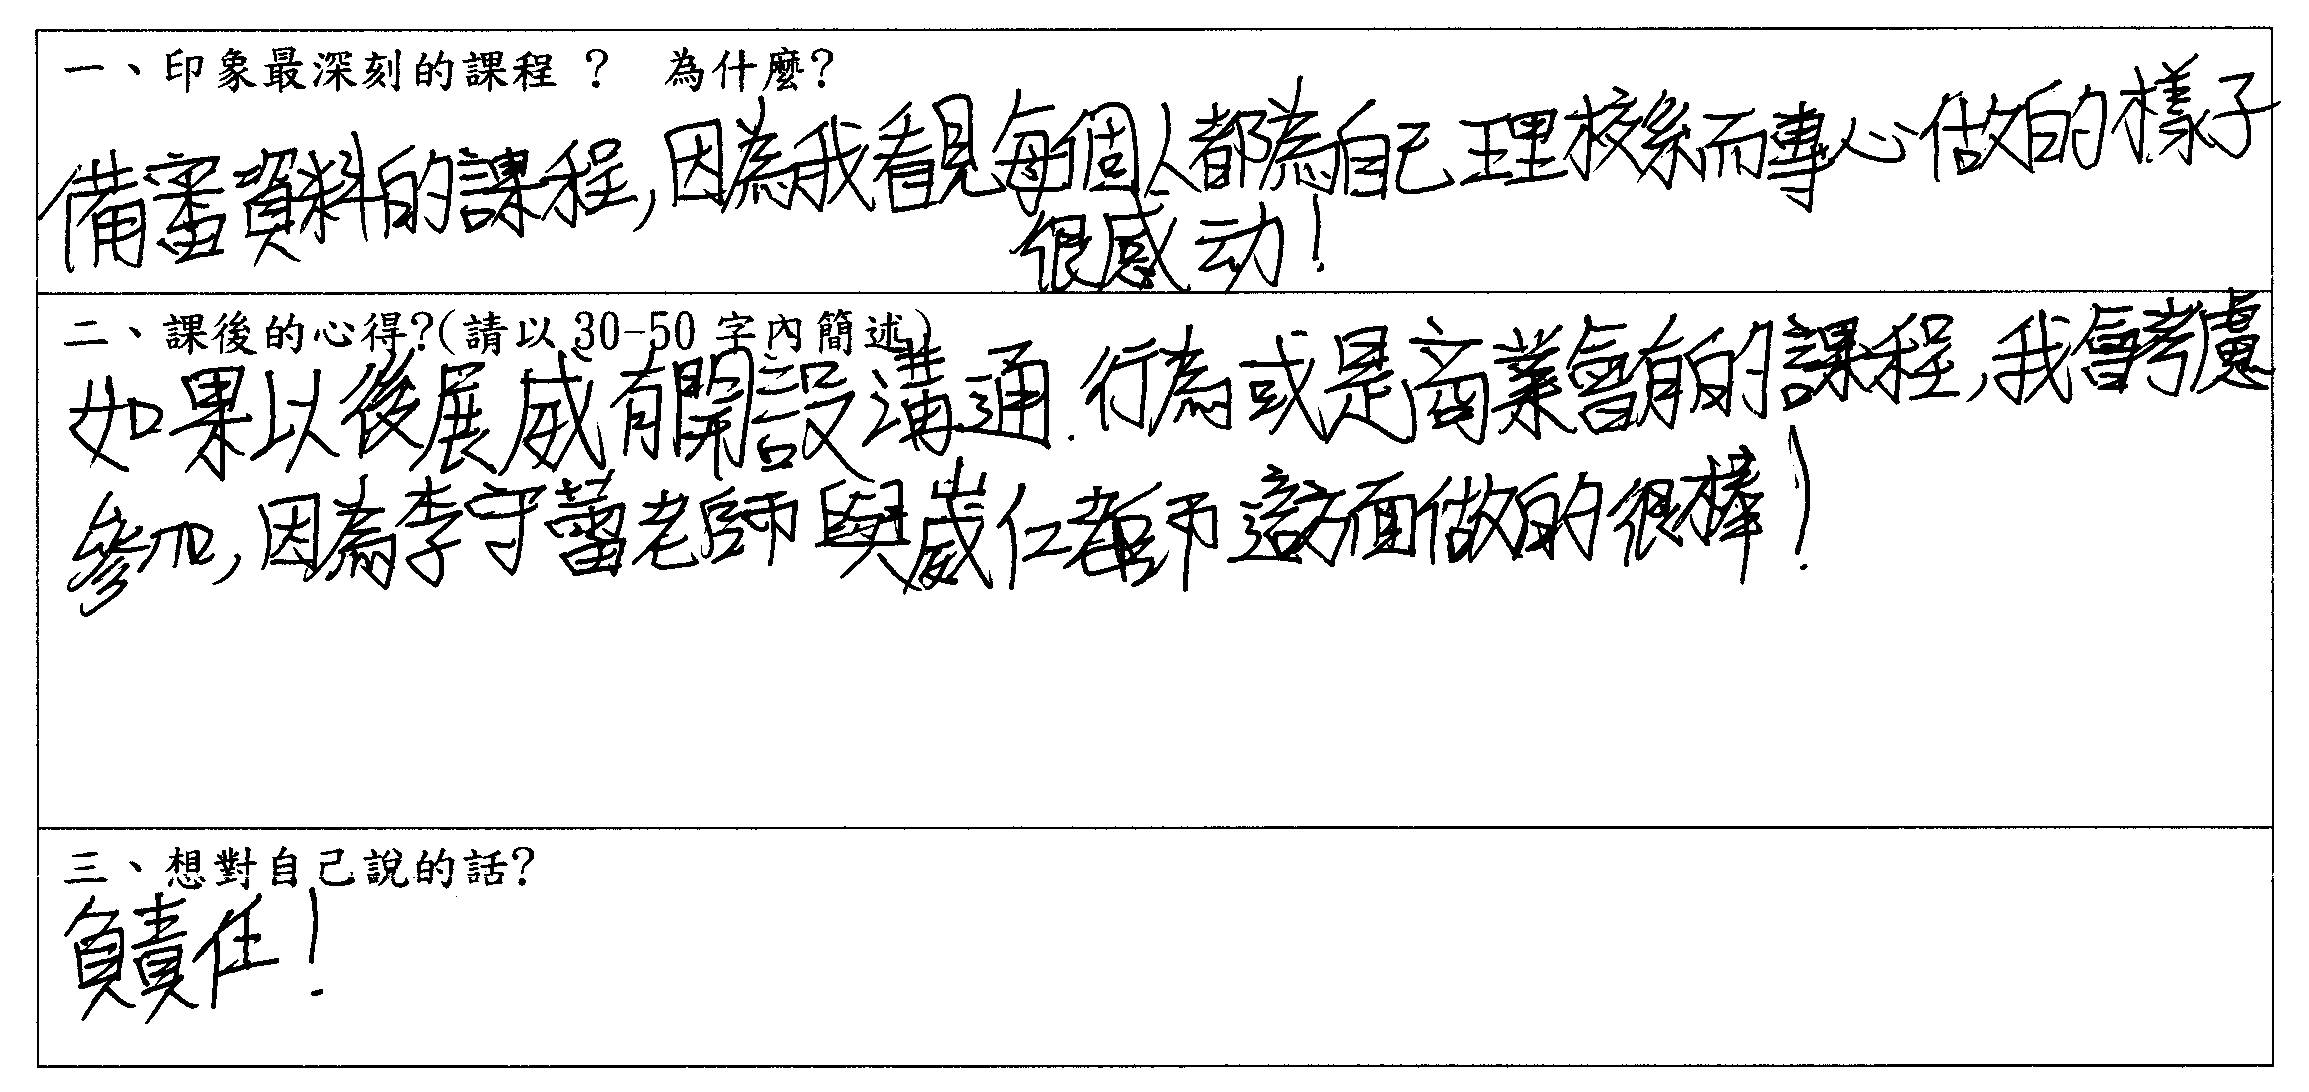 一、印象最深刻的課程 ? 為什麼?
備審資料的課程,因為我看見每個人都為自己理校系而專心做的樣子
很感动!
二、課後的心得?(請以 30-50 字內簡述)
如果以後展威有開設溝通.行為或是商業會有的課程,我會考慮
參加,因為李守蕾老師與崴仁老師這方面做的很棒!
三、想對自己說的話?
負責任!